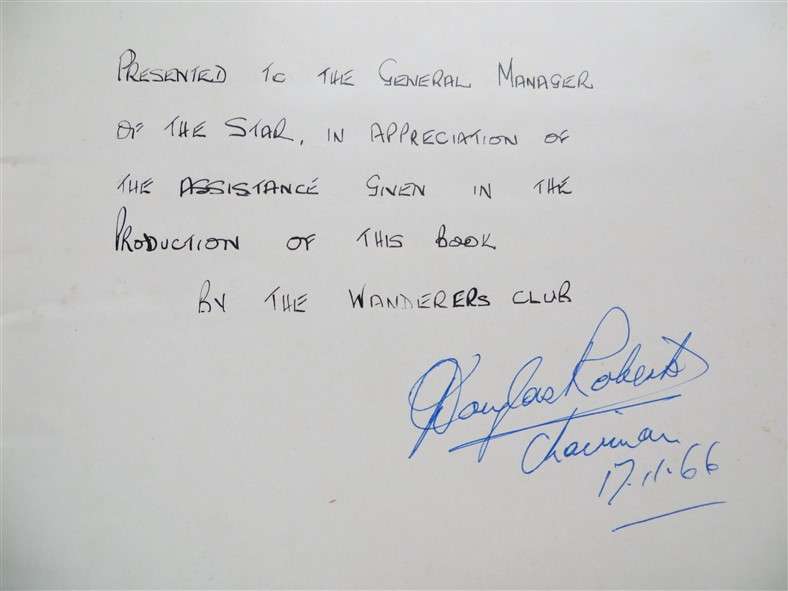 PRESENTED TO THE GENERAL MANAGER
OF THE STAR, IN APPRECIATION OF
THE ASSISTANCE GIVEN IN THE
PRODUCTION OF THIS BOOK
BY THE WANDERERS CLUB
Douglas Roberts
Chairman
17.11.66